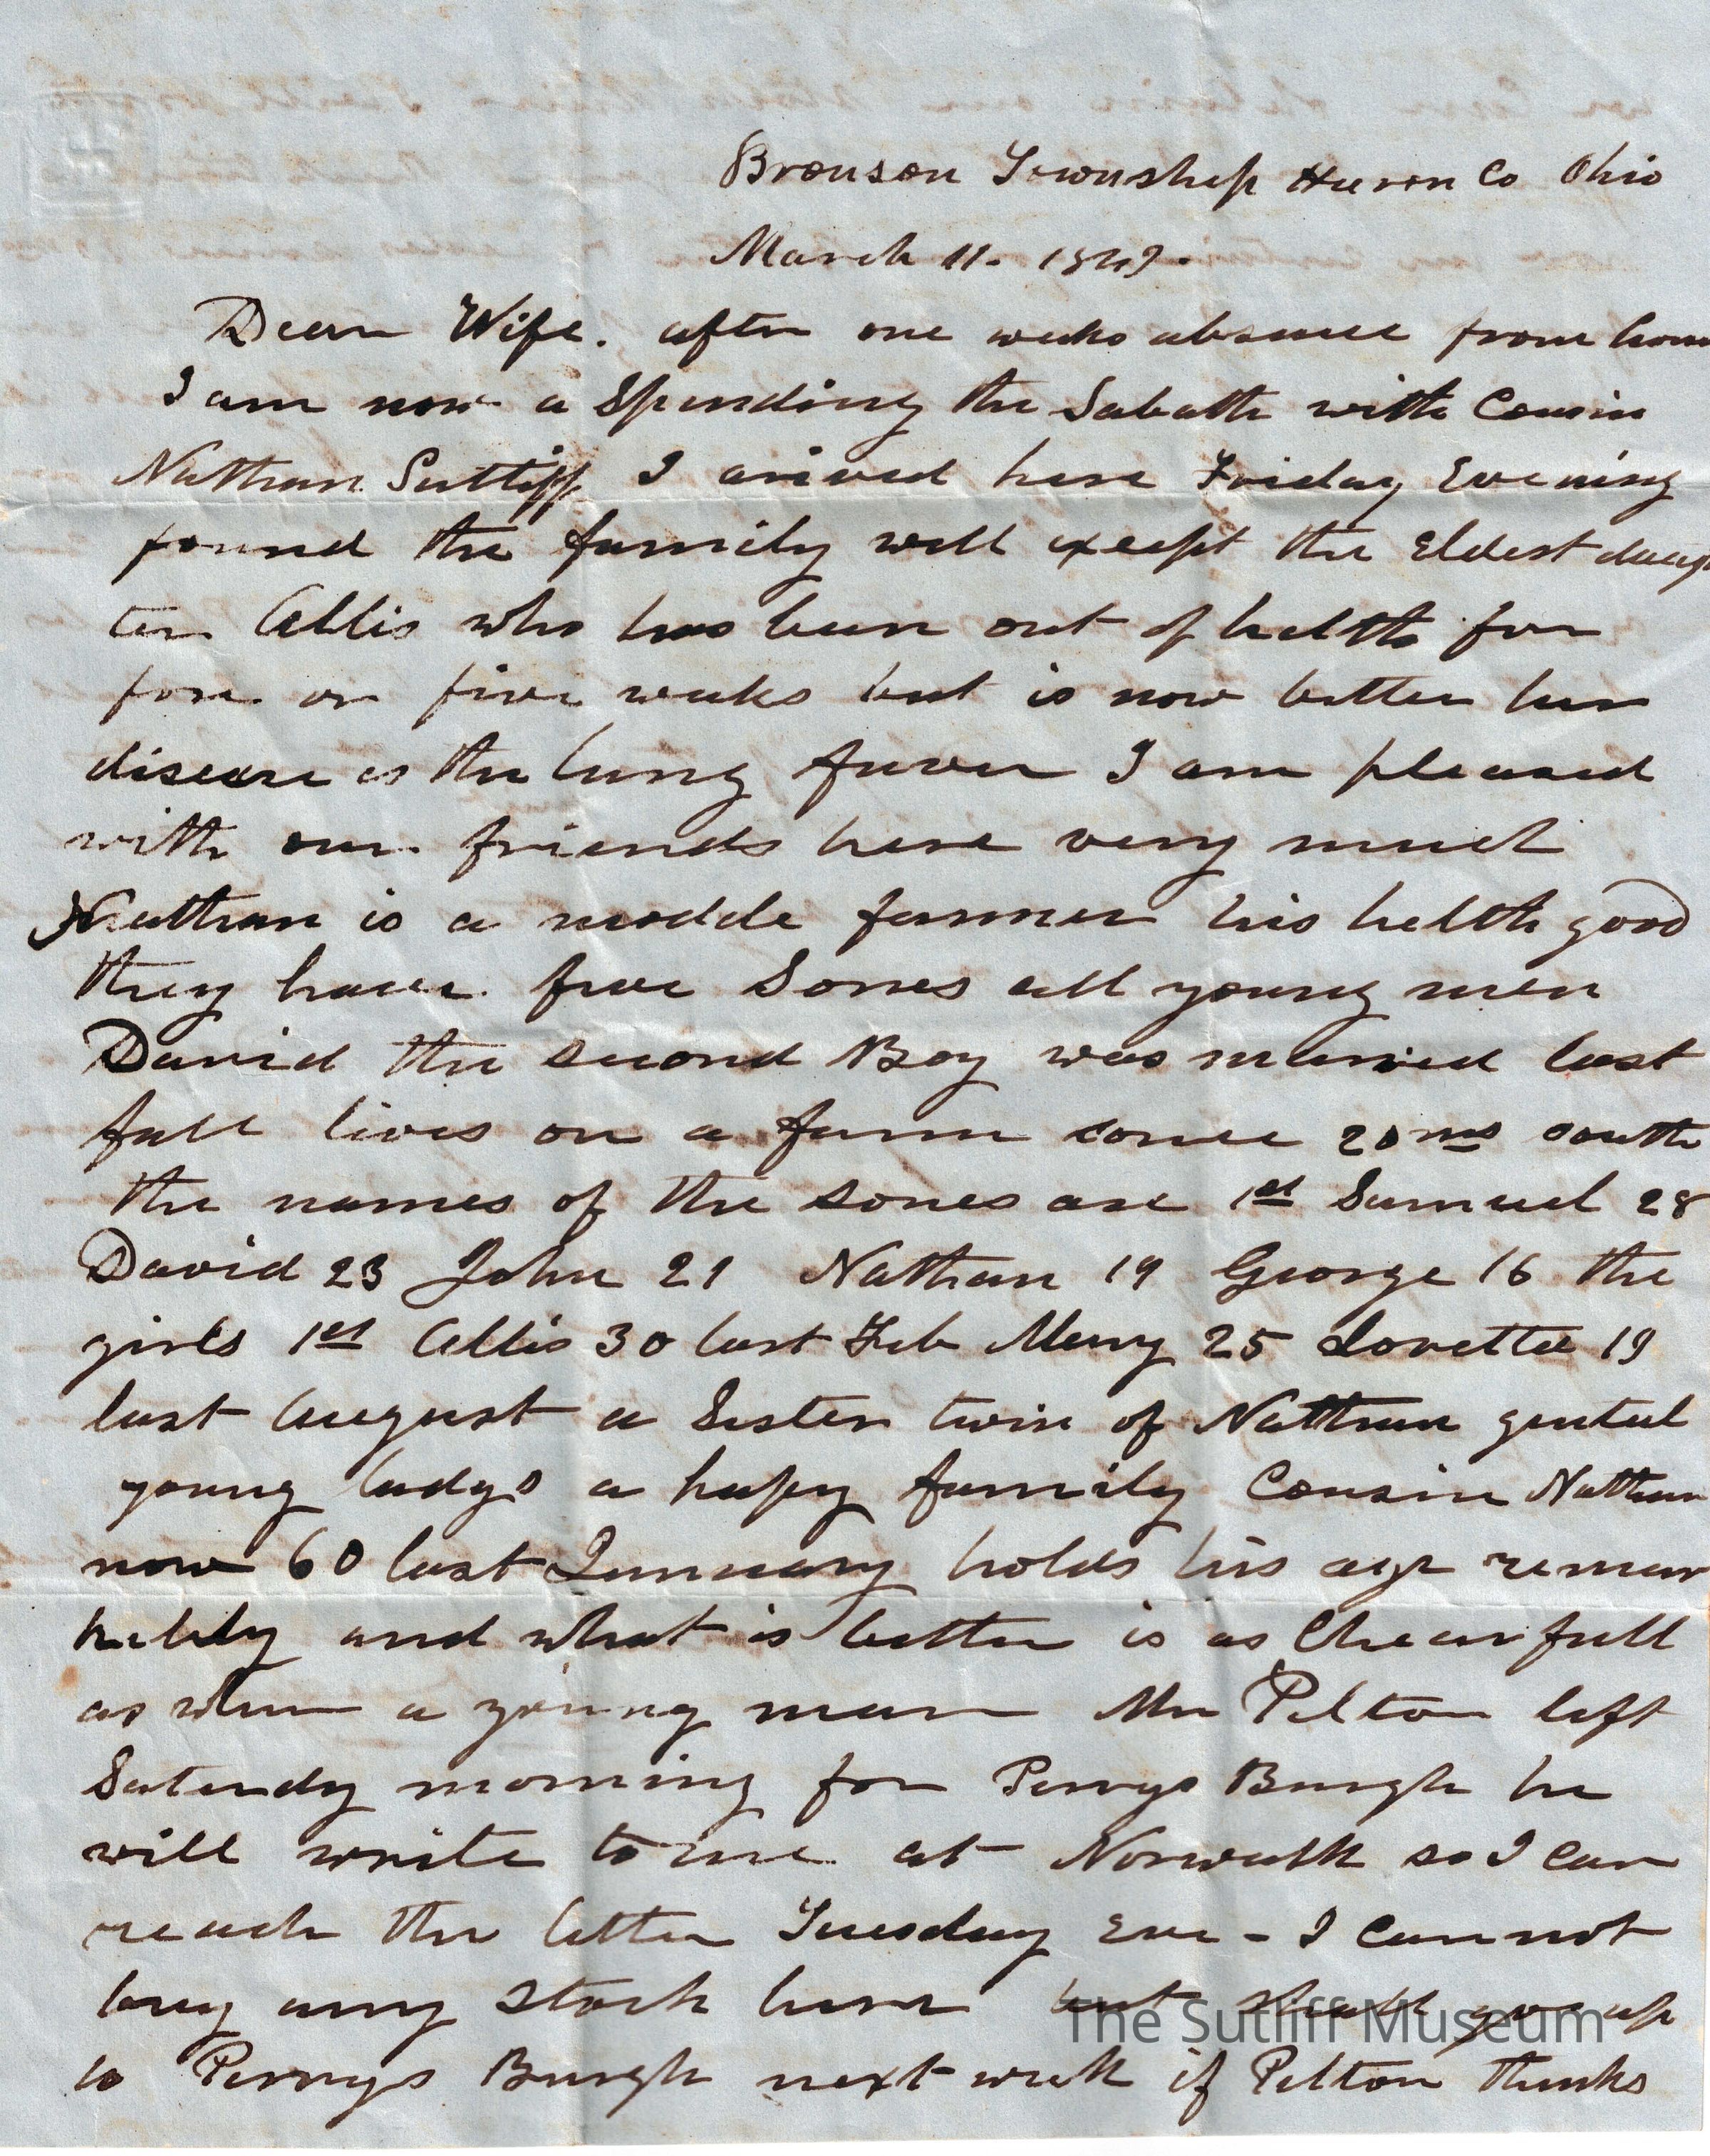 Bronson Township Huron Co Ohio
March 11. 1849.
Dear Wife. after one weeks absence from hom
I am now a Spending the Sabath with Cousin
Nathan Sutliff I arived here Friday Evening
found the family well except the Eldest daugh
ter Allis who has been out of helth for
fore or five weeks but is now better her
disease is the lung fever I am pleased
with our friends here very much
Nathan is a modde farmer his helth good
they have five Sones all young men
David the second Boy was married last
fall lives on a farm some 20 ms south
the names of the sones are 1st Samuel 28
David 23 John 21 Nathan 19 George 16 the
girls 1st Allis 30 last Feb Mary 25 Lovette 19
last August a Sister twin of Nathan genteel
young ladys a hapy family Cousin Nathan
now 60 last January holds his age remar
kebly and what is better is as Chearfull
as when a young man Mr Pelton left
Saterdy morning for Perrys Burgh he
will write to me at Norwalk so I can
reach the letter Tuesday Eve - I can not
buy any stock here but shall go up
to Perrys Burgh next week if Pelton thinks
The Sutliff Museum